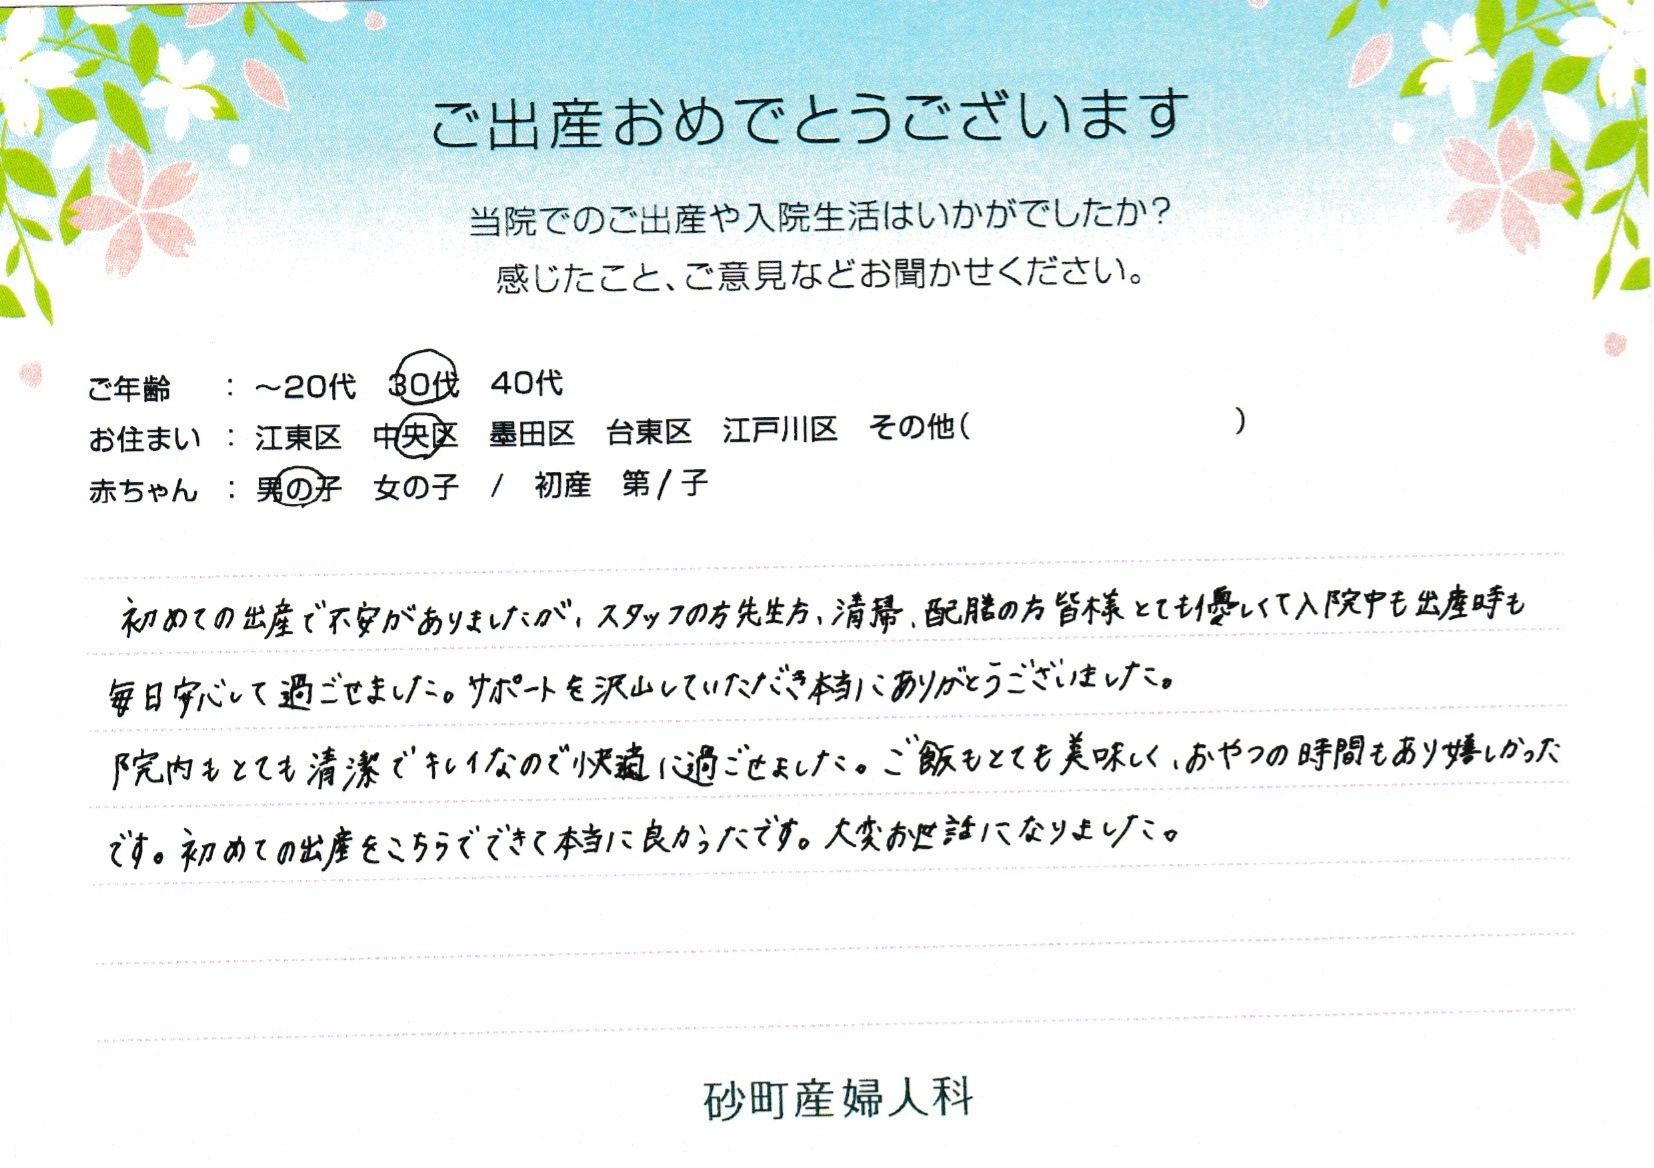 ご出産おめでとうございます
当院でのご出産や入院生活はいかがでしたか?
感じたこと、ご意見などお聞かせください。
ご年齢 : ～20代 30代 40代
お住まい : 江東区 中央区 墨田区 台東区 江戸川区 その他( )
赤ちゃん : 男の子 女の子 / 初産 第1子
初めての出産で不安がありましたが、スタッフの方先生方、清掃、配膳の方皆様とても優しくて入院中も出産時も
毎日安心して過ごせました。サポートを沢山していただき本当にありがとうございました。
院内もとても清潔でキレイなので快適に過ごせました。ご飯もとても美味しく、おやつの時間もあり嬉しかった
です。初めての出産をこちらでできて本当に良かったです。大変お世話になりました。
砂町産婦人科